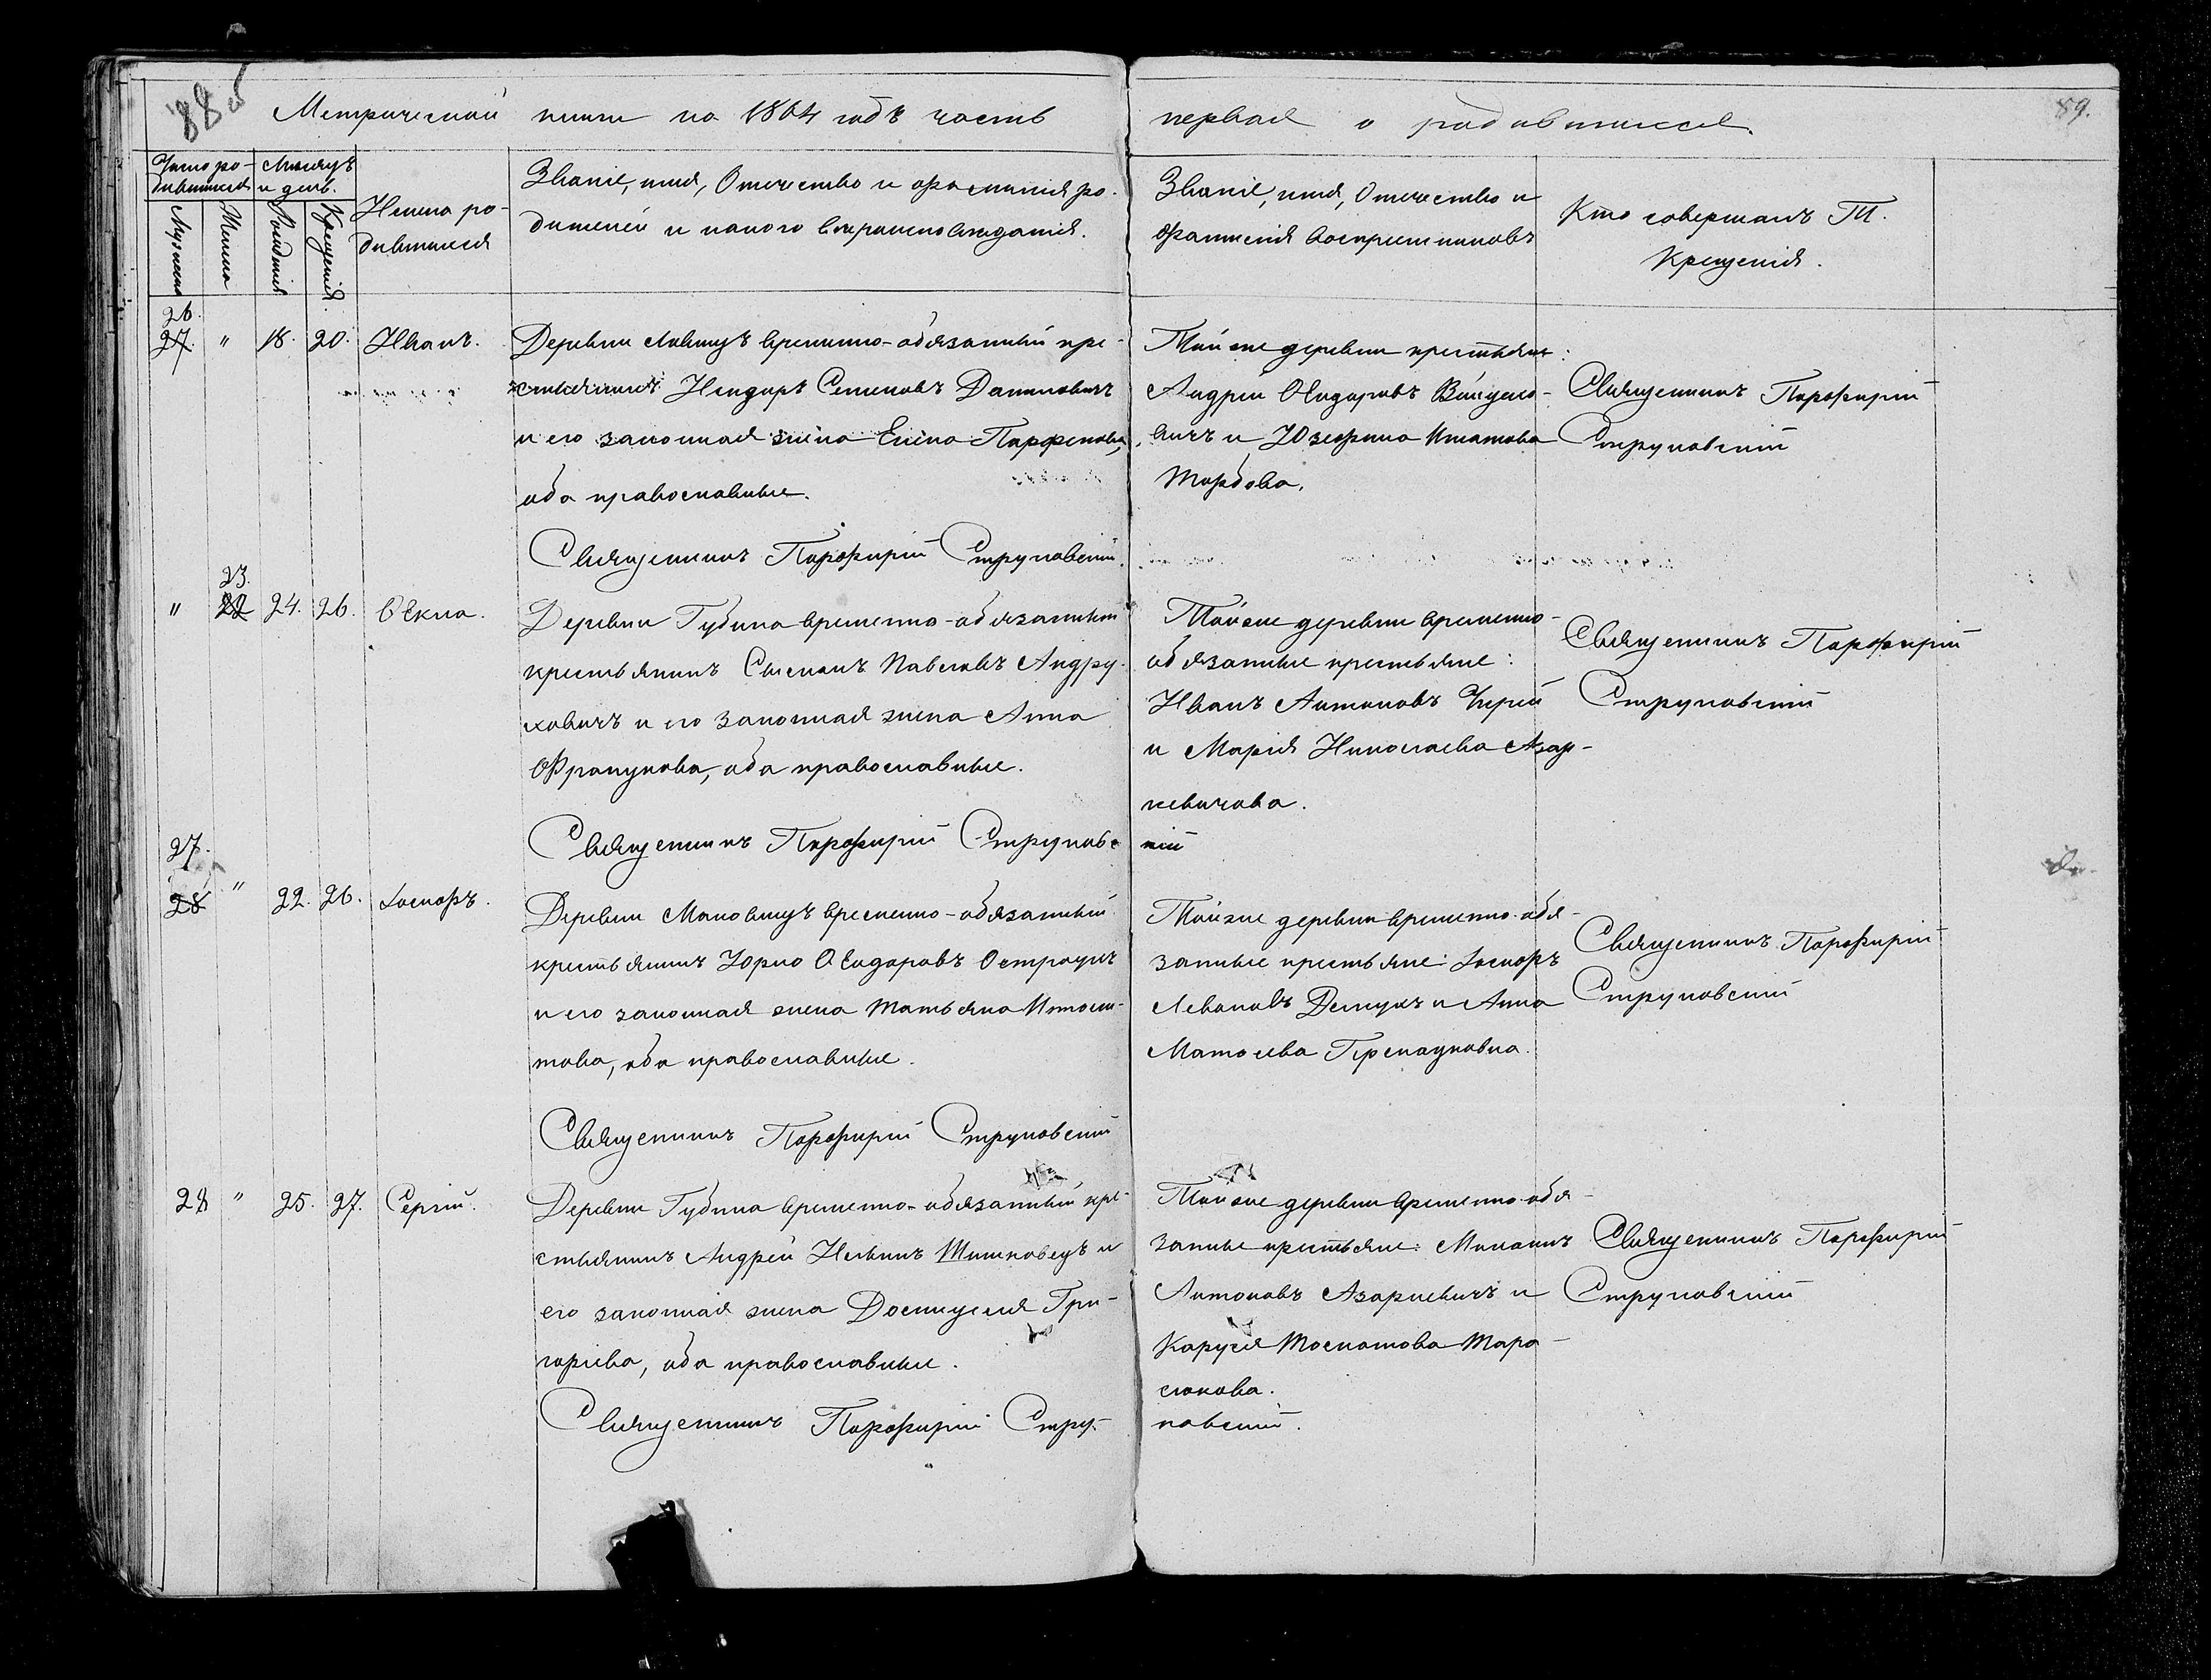 88 об
89.
Метрической книги на 1864 годъ часть первая о родившихся.
Число родившихся
Мѣсяцъ и день.
Мужеска
Женска
Рожденія
Крещенія.
Имена родившихся
Званіе, имя, Отечество и фамилія родителей и какого вѣроисповѣданія.
Званіе, имя, Отечество и фамилія воспріемниковъ
Кто совершалъ Т. Крещенія.
26.
27. " 18. 20. Иванъ.
Деревни временно-обязанный кре-
стьянинъ Сидоръ Семеновъ Даниловичъ
и его законная жена Елена Парфенова,
оба православные.
Священникъ Порфирій Струковскій.
Той же деревни крестьяне:
Андрей Ѳидоровъ
вичъ и Юзефина Игнатова
Священникъ Порфирій
Струковскій
23.
" 22 24. 26. Ѳекла.
Деревни Губина временно-обязанный
крестьянинъ Павловъ Андру-
ховичъ и его законная жена Анна
Францукова, оба православные.
Священникъ Порфирій Струковс
кій
Той же деревни временно-
обязанные крестьяне:
Иванъ Антоновъ Чирей
и Марія Николаева Азар-
кевичова.
Священникъ Порфирій
Струковскій
27.
28 " 22. 26. Іосифъ.
Деревни временно-обязанный
крестьянинъ Юрко Ѳидоровъ Остроухъ
и его законная жена Татьяна Иполи-
това, оба православные.
Священникъ Порфирій Струковскій
Той же деревни временно-обя-
занные крестьяне: Іосифъ
Левоновъ и Анна
Матѳеева
Священникъ Порфирій
Струковскій
28 " 25. 27. Сергій.
Деревни Губина временно-обязанный кре-
стьянинъ Андрей Ильинъ Шишковецъ и
его законная жена Доминуся Гри-
горьева, оба православные.
Священникъ Порфирій Стру-
ковскій.
Той же деревни временно-обя-
занные крестьяне:
Антоновъ Азаркевичъ и
Каруся Тара-
сюкова.
Священникъ Порфирій
Струковскій